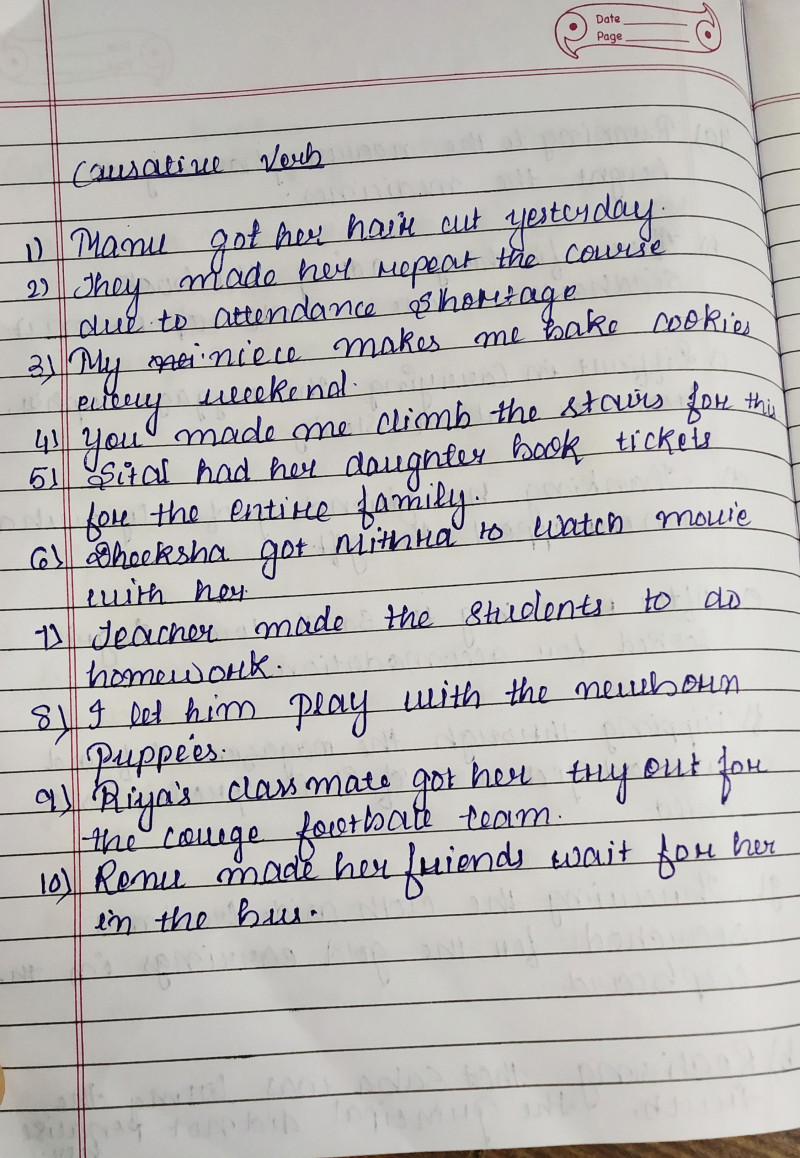 Date
Page
Causative Verb
1) Manu got her hair cut yesterday.
2) They made her repeat the course
due to attendance shortage
3) My niece makes me bake cookies
every weekend.
4) You made me climb the stairs for this
5) Sital had her daughter book tickets
for the entire family.
6) Dheeksha got Mithra to watch movie
with her.
7) Teacher made the students to do
homework.
8) I let him play with the newborn
puppees.
9) Riya's classmate got her try out for
the college football team.
10) Renu made her friends wait for her
in the bus.